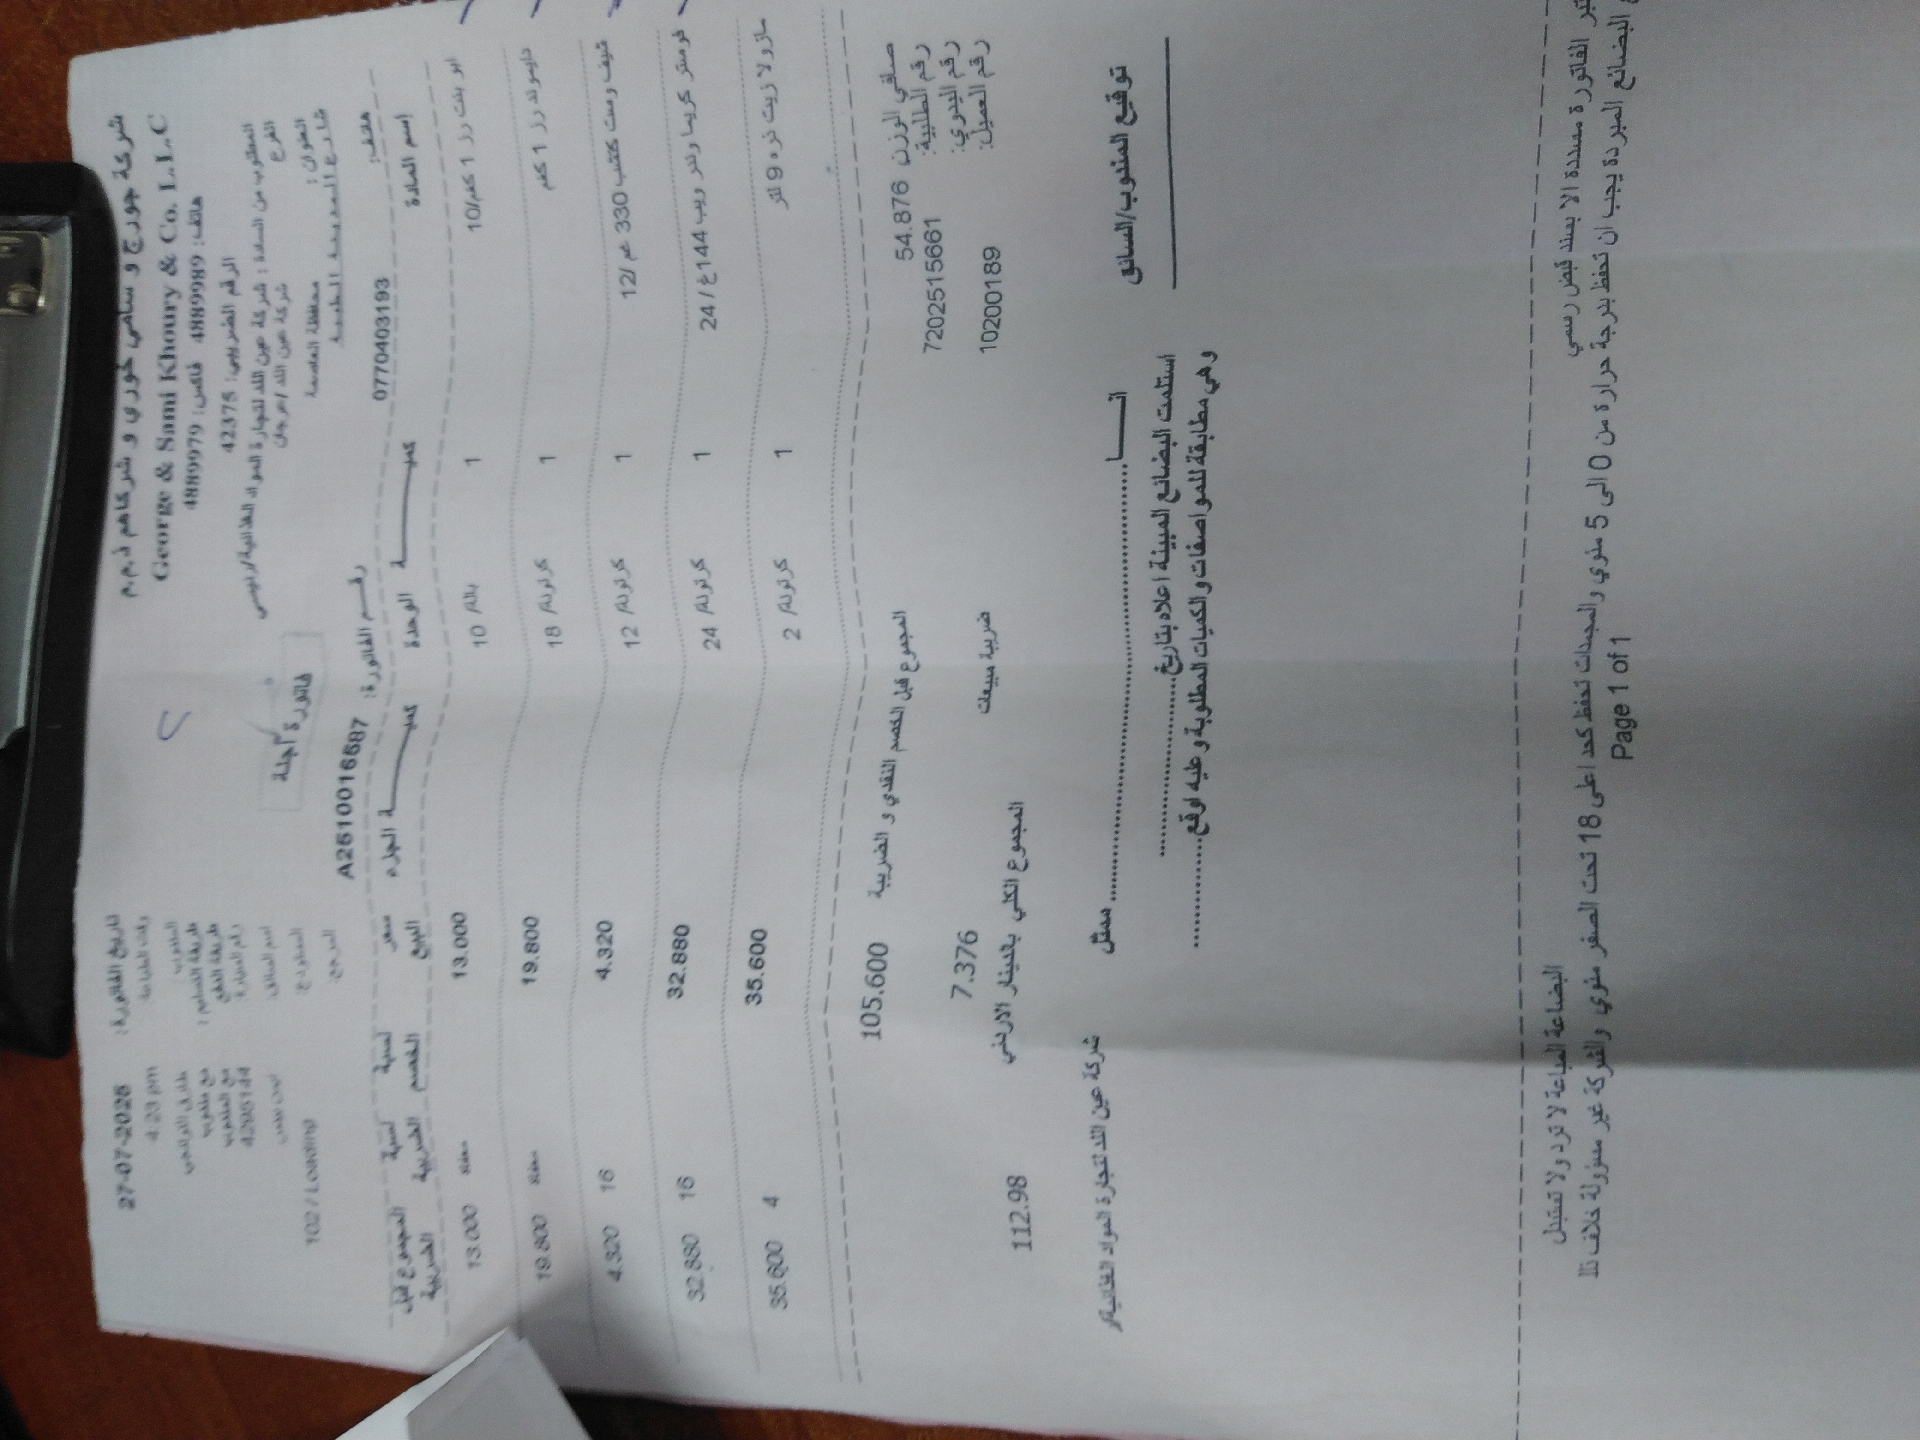 شركة جورج و سامي خوري و شركاهم ذ.م.م
George & Sami Khoury & Co. L.L.C
هاتف: 4889989 فاكس: 4889979
الرقم الضريبي: 42375
المطلوب من السادة: شركة عين اللد لتجارة المواد الغذائية/رئيسي
الفرع شركة عين اللد /مرجان
العنوان: محافظة العاصمة
شارع المدينة الطبية
هاتف: 0770403193
تاريخ الفاتورة: 27-07-2025
وقت الطباعة 4:23 pm
المندوب
طريقة التسليم:
طريقة الدفع
رقم السيارة
اسم السائق
المستودع: 102 / Loading
المرجع:
فاتورة آجلة
رقم الفاتورة: A2510016687
إسم المادة كميــــة الوحدة كميــــة الجزم سعر البيع نسبة الخصم نسبة الضريبة المجموع قبل الضريبة
ابو بنت رز 1 كغم/10 1 بالة/ 10 13.000 معفاة 13.000
دايموند رز 1 كغم 1 كرتونة/ 18 19.800 معفاة 19.800
شيف ومت كتشب 330 غم /12 1 كرتونة/ 12 4.320 16 4.320
فرمتر كريما وندر ويب 144غ / 24 1 كرتونة/ 24 32.880 16 32.880
مازولا زيت ذره 9 لتر 1 كرتونة/ 2 35.600 4 35.600
صافي الوزن 54.876
المجموع قبل الخصم النقدي و الضريبة 105.600
رقم الطلبية: 7202515661
رقم اليدوي:
ضريبة مبيعات 7.376
رقم العميل: 10200189
المجموع الكلي بالدينار الاردني 112.98
توقيع المندوب/السائق
انـــا........................ ممثل شركة عين اللد لتجارة المواد الغذائية/ر
استلمت البضائع المبينة اعلاه بتاريخ........................
وهي مطابقة للمواصفات والكميات المطلوبة و عليه اوقع........................
الفاتورة مسددة الا بسند قبض رسمي
البضاعة المباعة لا ترد ولا تستبدل
البضائع المبردة يجب ان تحفظ بدرجة حرارة من 0 الى 5 مئوي والمجمدات تحفظ كحد اعلى 18 تحت الصفر مئوي والشركة غير مسؤولة خلاف ذلك
Page 1 of 1